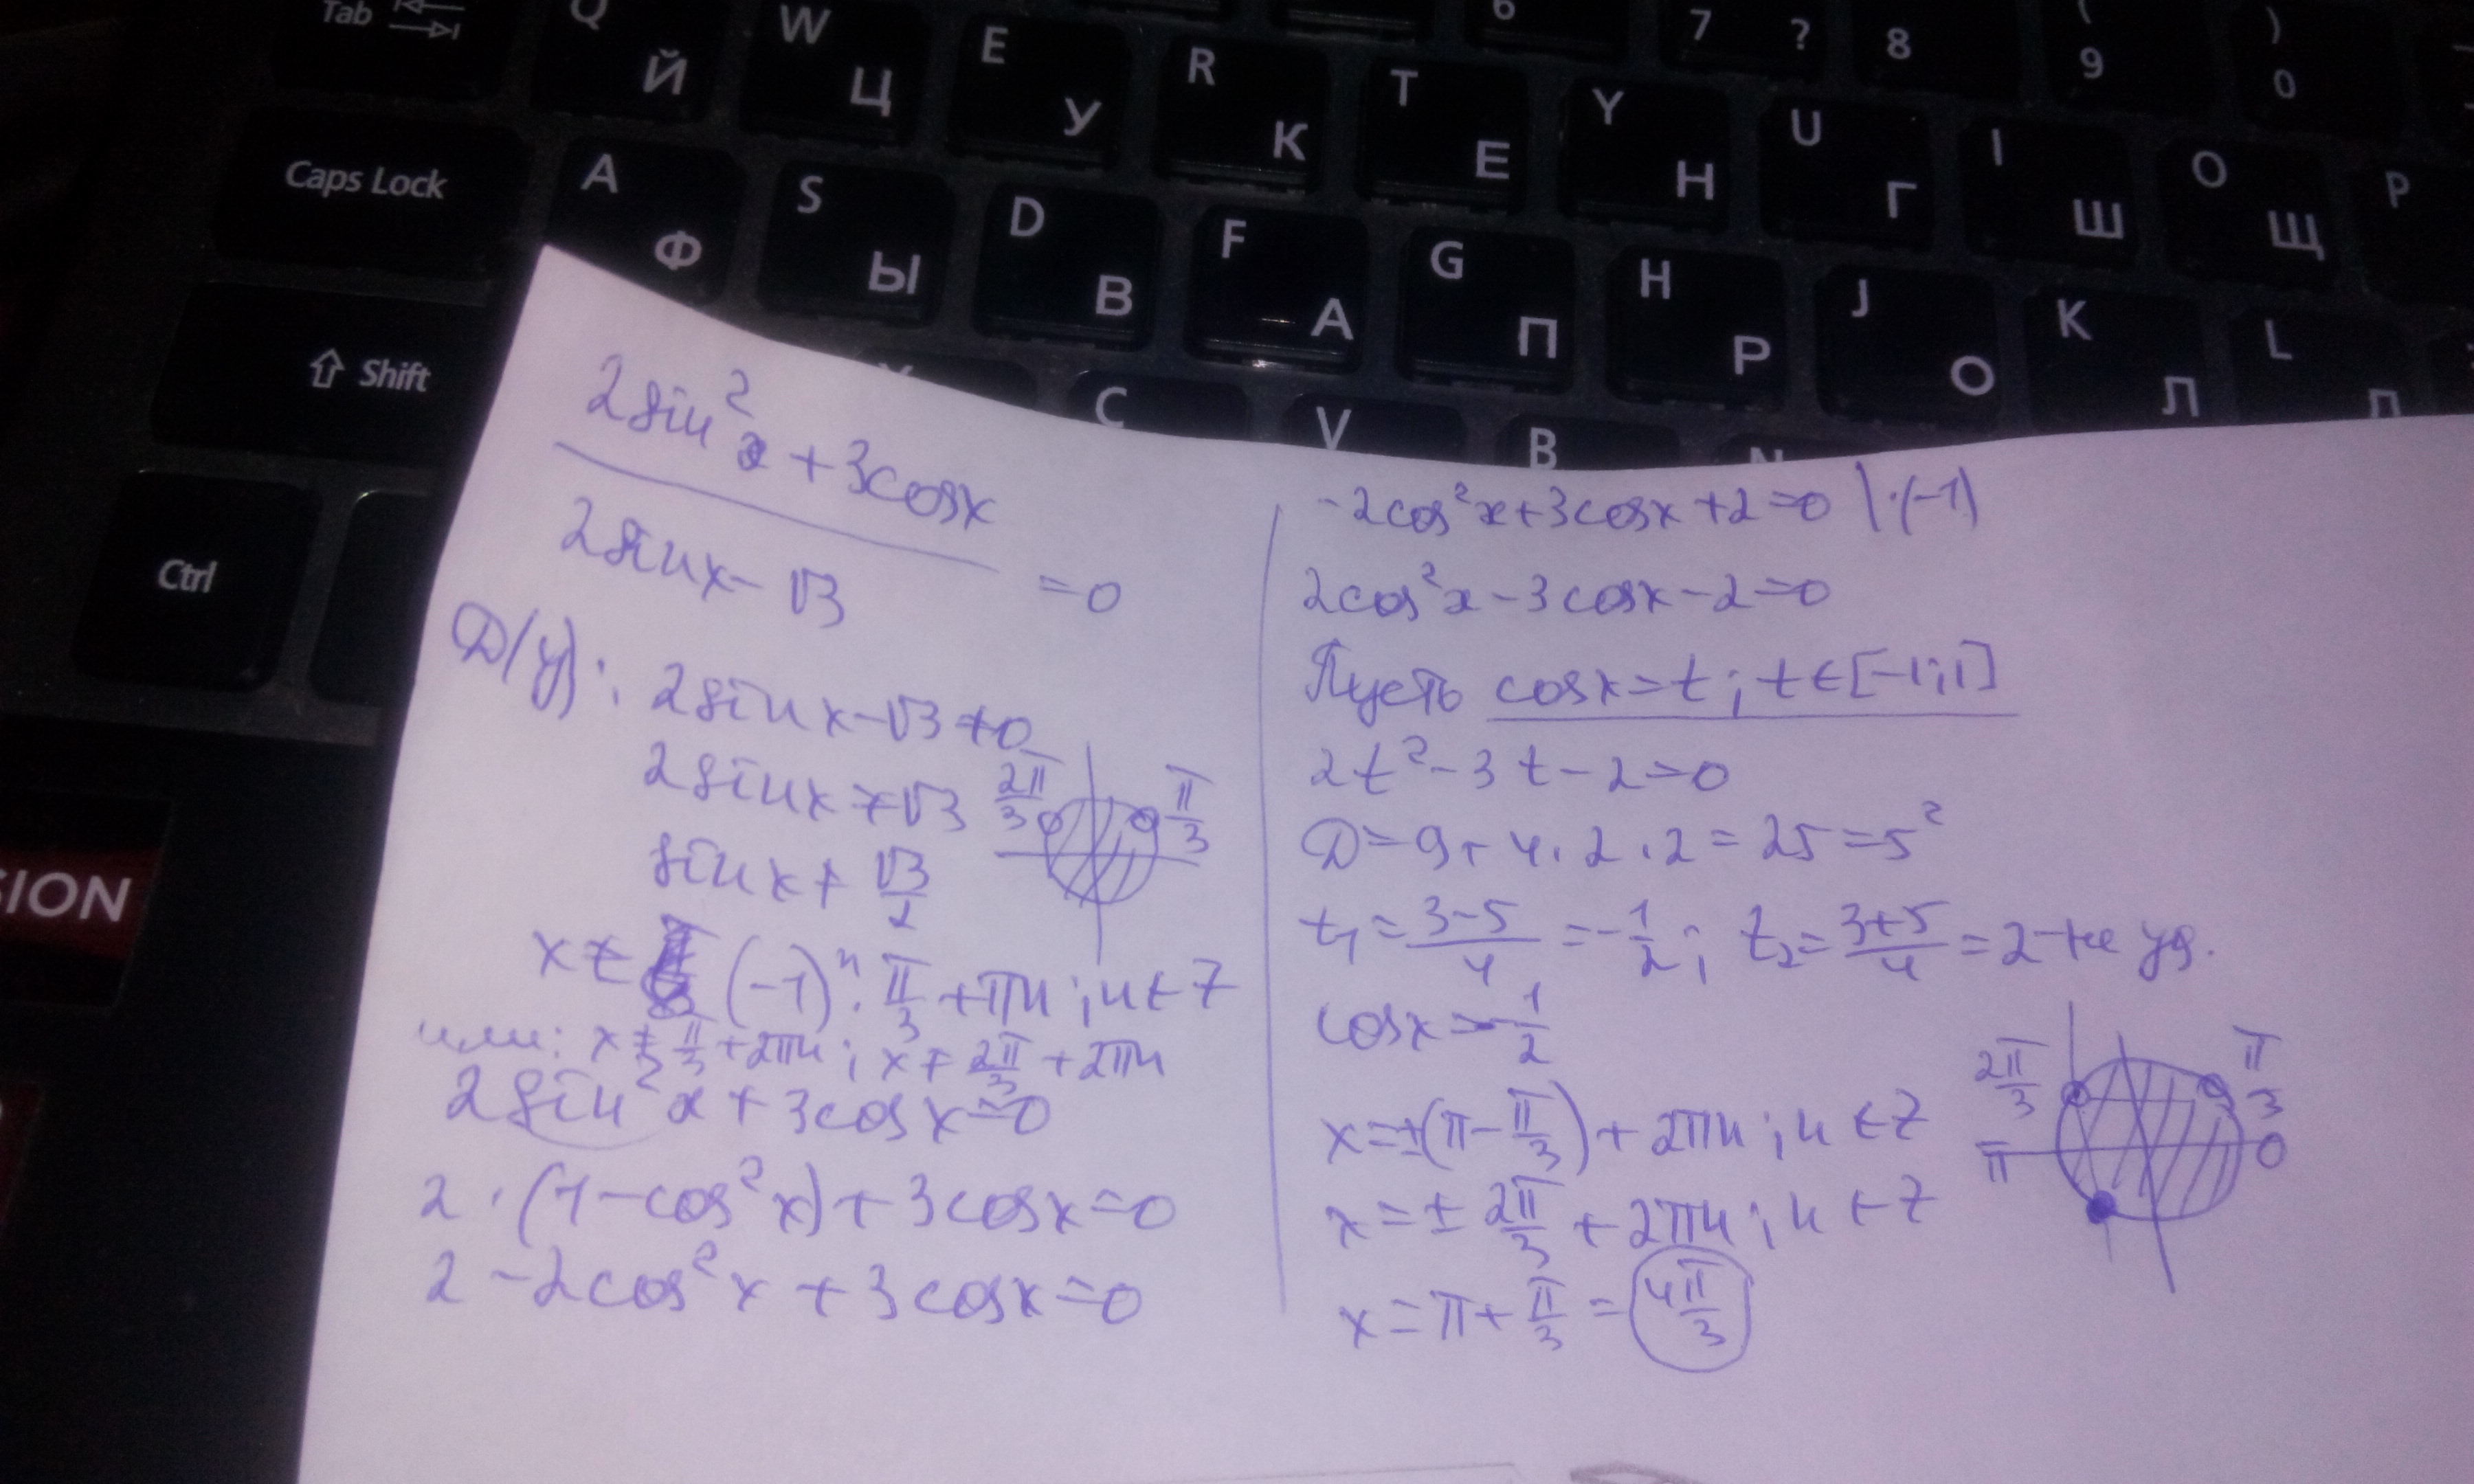 Tab
Q Й W Ц E У R К T Е Y Н U Г I Ш O Щ P
6 7 ? 8 ( 9 ) 0
Caps Lock A Ф S Ы D В F А G П H Р J О K Л L Д
Shift C V B N
Ctrl
SION
2sin²x + 3cosx
2sinx - √3 = 0
D(y): 2sinx - √3 ≠ 0
2sinx ≠ √3
2π/3 π/3
sinx ≠ √3/2
x ≠ (-1)ⁿ · π/3 + πn; n ∈ Z
или: x ≠ π/3 + 2πn; x ≠ 2π/3 + 2πn
2sin²x + 3cosx = 0
2 · (1 - cos²x) + 3cosx = 0
2 - 2cos²x + 3cosx = 0
-2cos²x + 3cosx + 2 = 0 | ·(-1)
2cos²x - 3cosx - 2 = 0
Пусть cosx = t; t ∈ [-1; 1]
2t² - 3t - 2 = 0
D = 9 + 4 · 2 · 2 = 25 = 5²
t₁ = (3-5)/4 = -1/2; t₂ = (3+5)/4 = 2 - не уд.
cosx = -1/2
x = ±(π - π/3) + 2πn; n ∈ Z
x = ± 2π/3 + 2πn; n ∈ Z
x = π + π/3 = 4π/3
2π/3 π/3
π 0